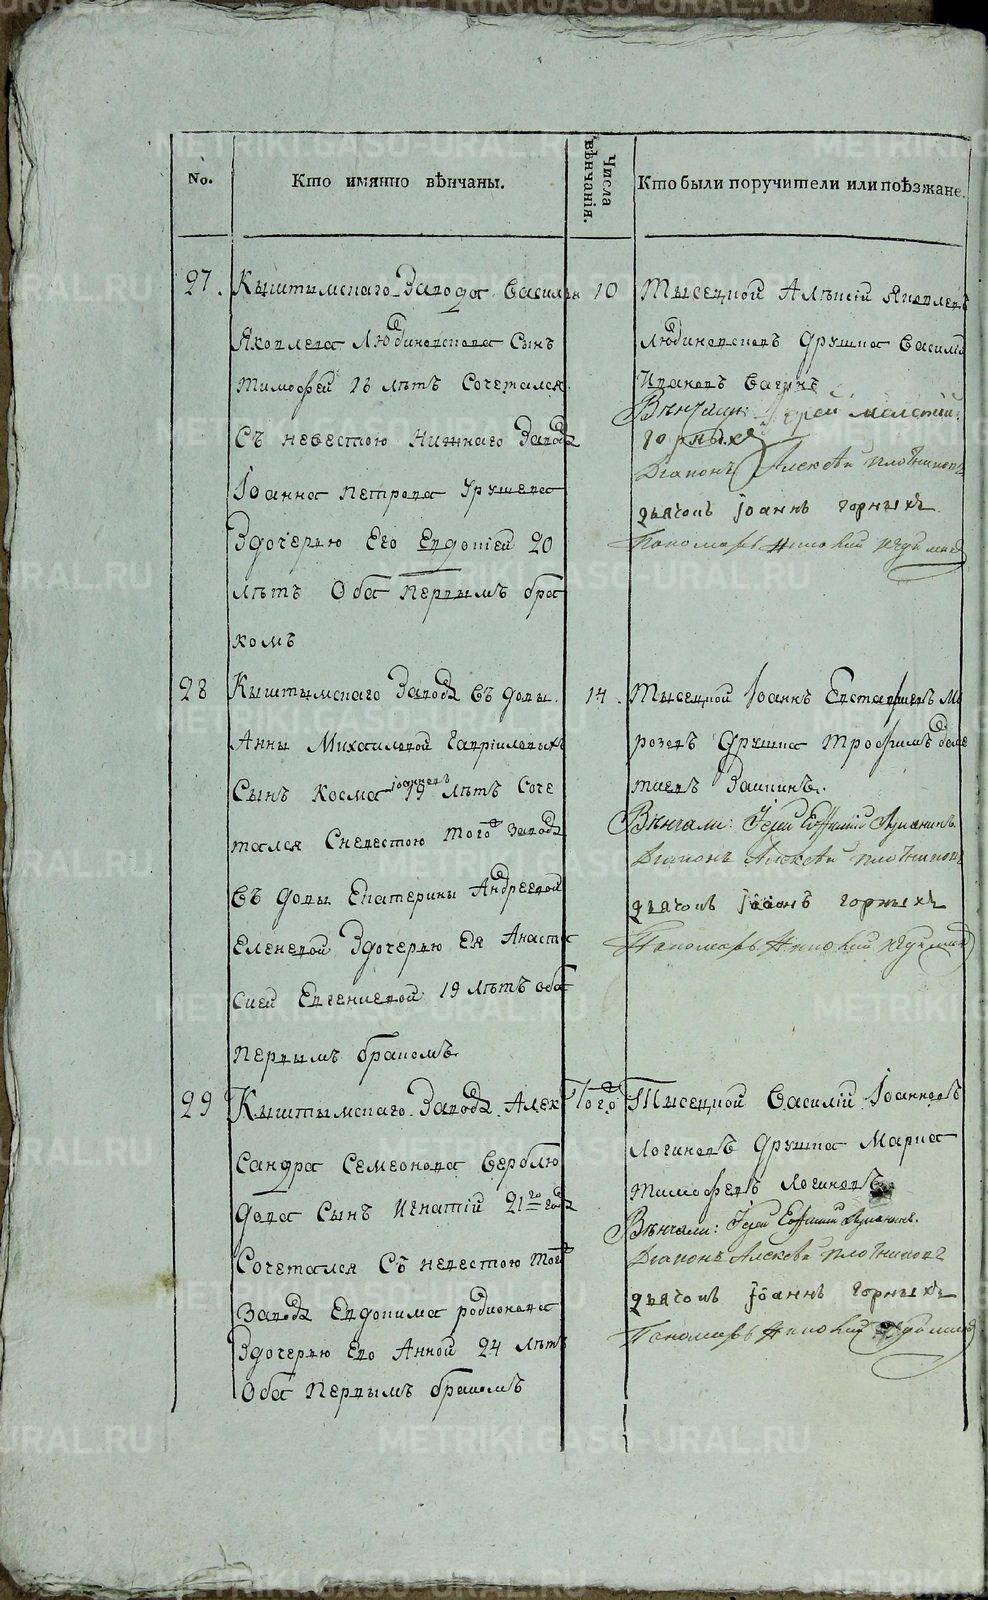 No.
Кто имянно вѣнчаны.
Числа вѣнчанія.
Кто были поручители или поѣзжане.
27.
Кыштымскаго Завода Василья
Яковлева Любимовскова Сынъ
Тимофей 18 лѣтъ Сочетался
Съ невестою Нижнаго Завода
Іоанна Петрова
Здочерью Его Евдокіей 20
лѣтъ Оба Первымъ бра
комъ
10
Тысецкой Алѣксій Яковлевъ
Дружка Василій
Ивановъ
Вѣнчали: Іерей
Горныхъ
Діаконъ Алексѣй Плотниковъ
дьячокъ Іоаннъ Горныхъ
Пономарь
28
Кыштымскаго Завода Въдовы
Анны Михаиловой Гавріиловыхъ
Сынъ Косма Іоанновъ 19 лѣтъ Соче
тался Сневестою того Завода
Въдовы Екатерины Андреевой
Еленевой Здочерью Ея Анаста
сией Евгениевой 19 лѣтъ оба
Первымъ бракомъ
14.
Тысецкой Іоаннъ Евстафиевъ Мо
розовъ Дружка Трофимъ
Вѣнчали: Іерей Евфимій
Діаконъ Алексѣй Плотниковъ
дьячокъ Іоаннъ Горныхъ
Пономарь
29
Кыштымскаго Завода Алек
сандра Семеонова Верблю
дова Сынъ Игнатій 21го года
Сочетался Съ невестою того
Завода Евдокима родионова
Здочерью Его Анной 24 лѣтъ
Оба Первымъ бракомъ
Того
Тысецкой Василій Іоанновъ
Логиновъ Дружка Марка
Тимофеевъ Логиновъ
Вѣнчали: Іерей Евфимій
Діаконъ Алексѣй Плотниковъ
дьячокъ Іоаннъ Горныхъ
Пономарь
METRIKI.GASO-URAL.RU